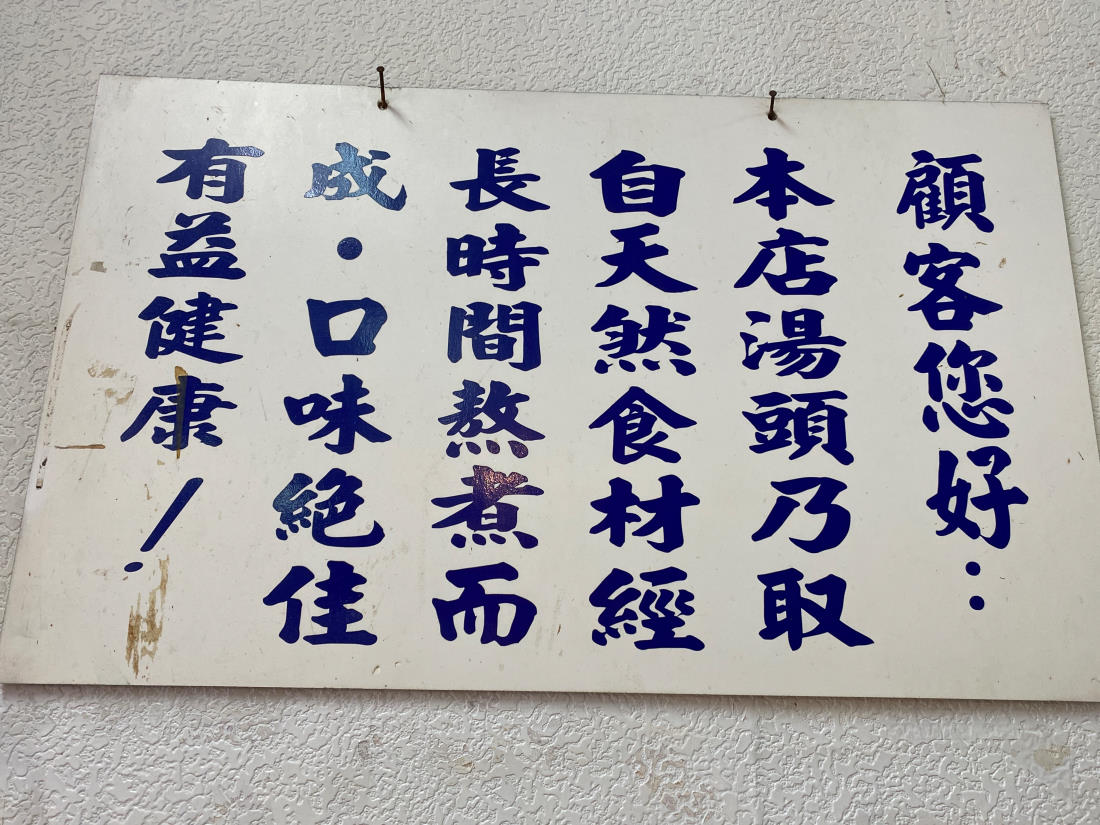 顧客您好：
本店湯頭乃取
自天然食材經
長時間熬煮而
成・口味絕佳
有益健康！